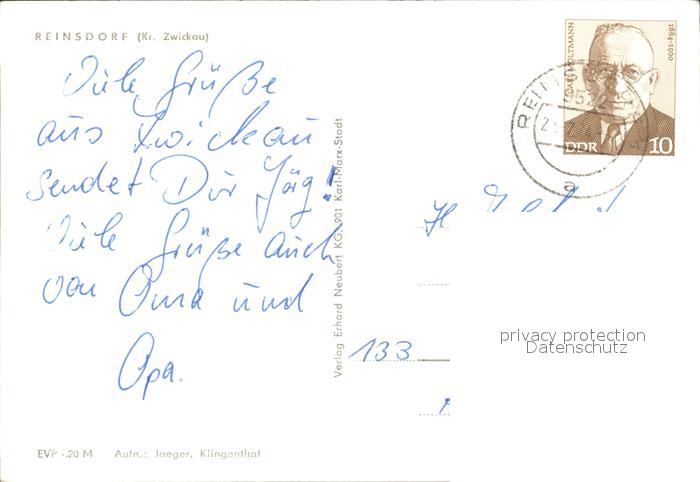 REINSDORF (Kr. Zwickau)
Viele Grüße
aus Zwickau
sendet Dir Jörg!
Viele Grüße auch
von Oma und
Opa.
EVP -.20 M Aufn.: Jaeger, Klingenthal
Verlag Erhard Neubert KG, 901 Karl-Marx-Stadt
1884-1960
DDR 10
133
privacy protection
Datenschutz